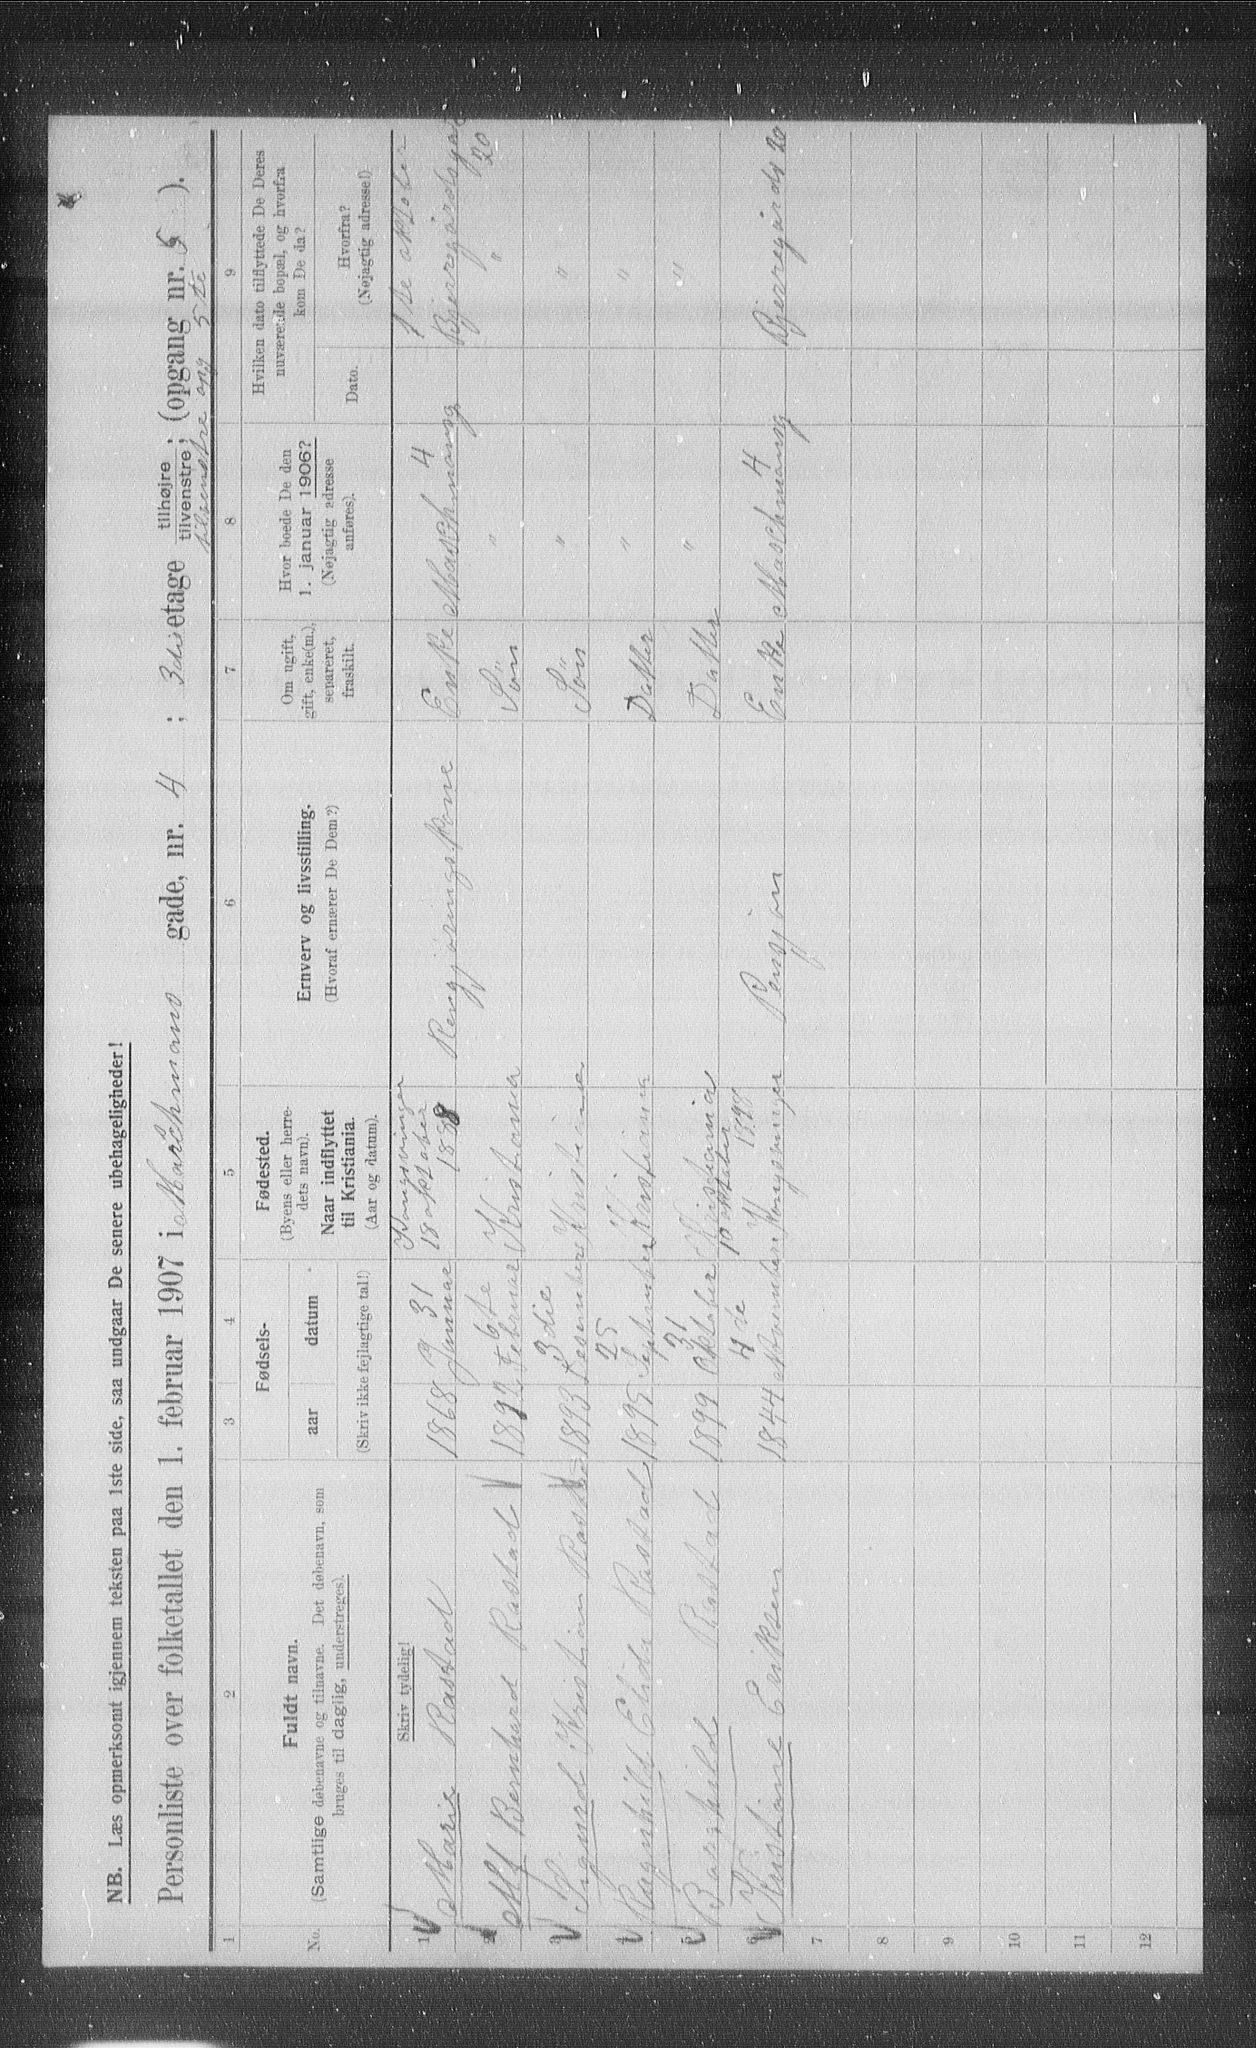 NB. Læs opmerksomt igjennem teksten paa 1ste side, saa undgaar De senere ubehageligheder!
Personliste over folketallet den 1. februar 1907 i Marchmans gade, nr. 4 ; 3die etage tilhøjre ; (opgang nr. 5 ).
tilvenstre;
tilvenstre opg 5te
1 2 3 4 5 6 7 8 9
No.
Fuldt navn.
(Samtlige døbenavne og tilnavne. Det døbenavn, som
bruges til daglig, understreges).
Fødsels-
aar datum
(Skriv ikke fejlagtige tal!)
Fødested.
(Byens eller herre-
dets navn).
Naar indflyttet
til Kristiania.
(Aar og datum).
Ernverv og livsstilling.
(Hvoraf ernærer De Dem?)
Om ugift,
gift, enke(m.),
separeret,
fraskilt.
Hvor boede De den
1. januar 1906?
(Nøjagtig adresse
anføres).
Hvilken dato tilflyttede De Deres
nuværende bopæl, og hvorfra
kom De da?
Dato.
Hvorfra?
(Nøjagtig adresse!)
Skriv tydelig!
1 Marie Rastad 1868 31 Januar Kongsvinger 18 oktober 1888 Rengjøringskone Enke Maschmansg 4 1ste oktober Bjerregårdsgad 20
2 Alf Bernhard Rastad 1892 6te Februar Kristiania Søn " "
3 Sigurd Kristian Rast 1893 3die Desember Kristiania Søn " "
4 Ragnhild Elida Rastad 1895 25 September Kristiania Datter " "
5 Borghild Rastad 1899 31 Oktober Kristiania Datter " "
6 Kristiane Eriksen 1844 4de November Kongsvinger 10 oktober 1898 Pensjon Enke Maschmansg 4 Bjerregårds 20
7
8
9
10
11
12